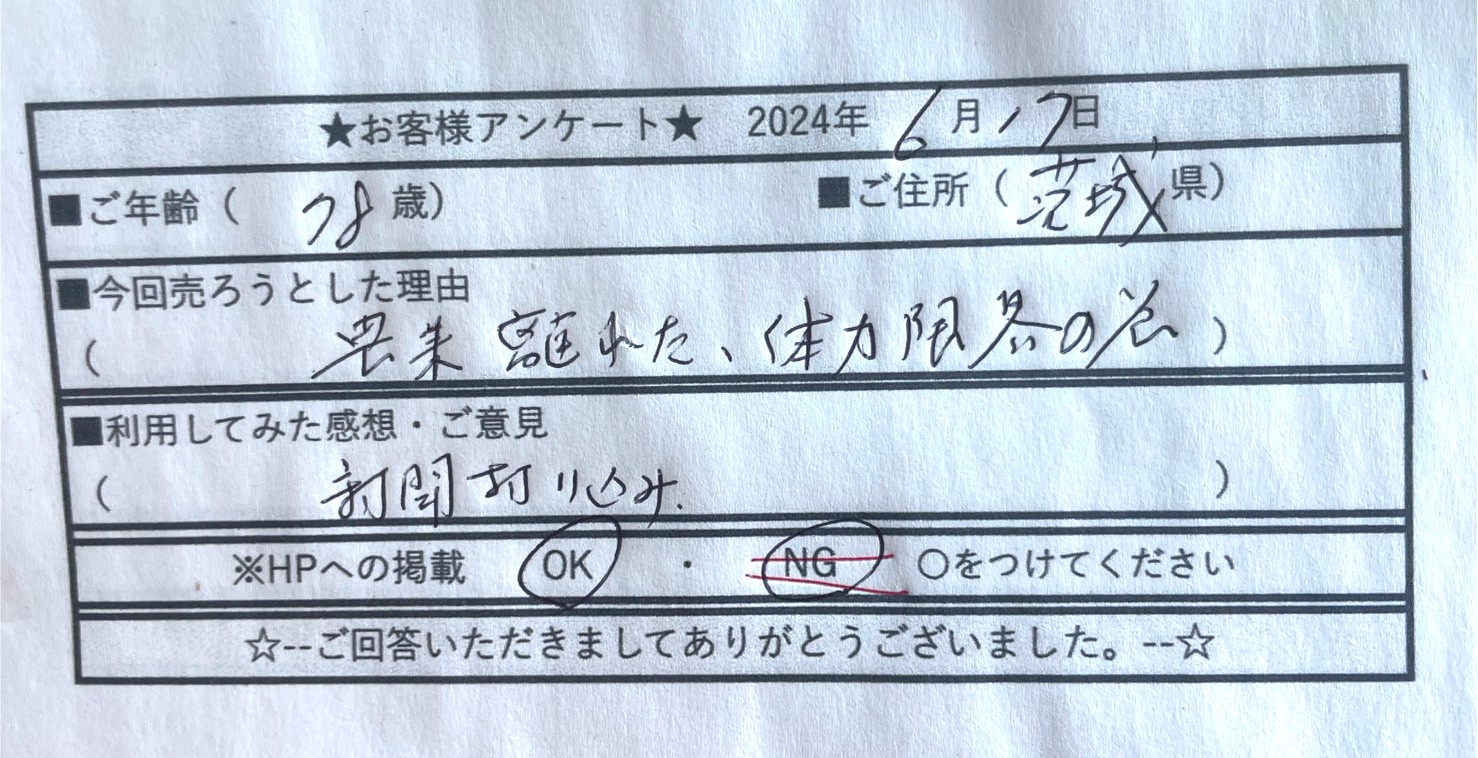 ★お客様アンケート★ 2024年 6月17日
■ご年齢（ 78歳） ■ご住所（茨城県）
■今回売ろうとした理由
（ 農業離れた、体力限界の為 ）
■利用してみた感想・ご意見
（ 新聞打り込み. ）
※HPへの掲載 OK ・ NG ○をつけてください
☆--ご回答いただきましてありがとうございました。--☆